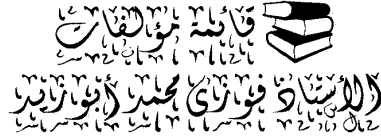 قائمة مؤلفات
الأستاذ فوزى محمد أبوزيد